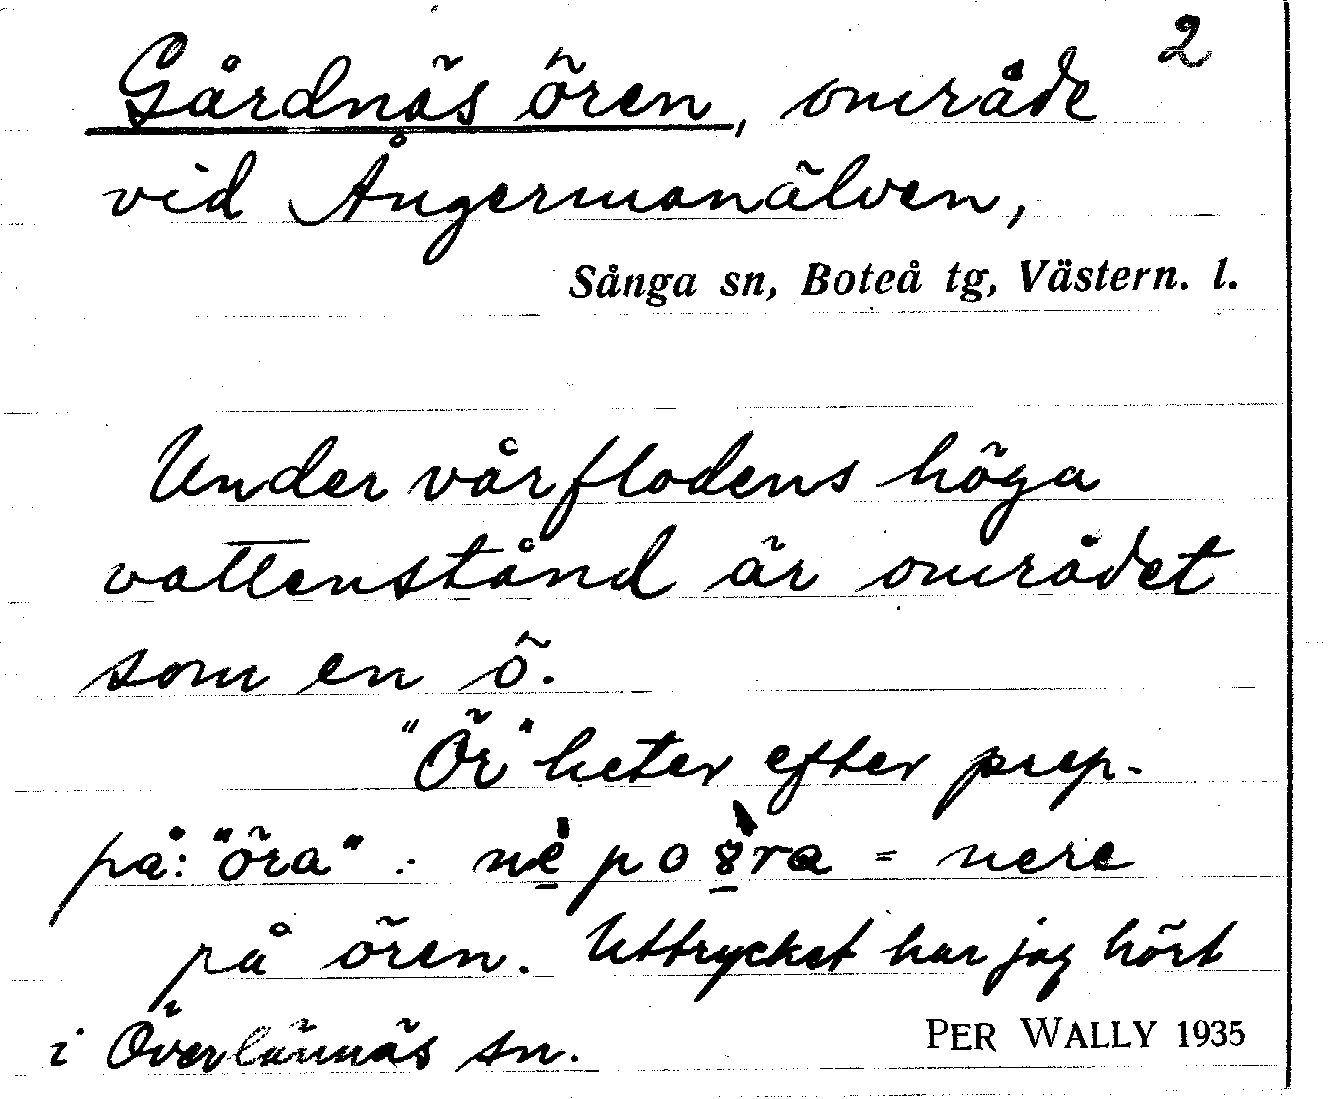 2
Gårdnäs ören, område
vid Ångermanälven,
Sånga sn, Boteå tg, Västern. l.
Under vårflodens höga
vattenstånd är området
som en ö.
"Ör" heter efter prep.
på: "öra" : nè̱ po 8̱̀ra = nere
på ören. Uttrycket har jag hört
i Överlännäs sn.
PER WALLY 1935